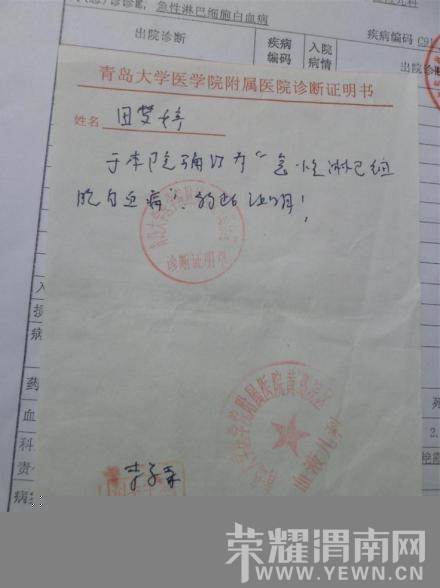 诊断，急性淋巴细胞白血病
出院诊断
疾病
编码
入院
病情
疾病编码 C91
出院诊断
青岛大学医学院附属医院诊断证明书
姓名 田梦婷
于本院确诊为“急性淋巴细
胞白血病”. 特此证明!
诊断证明章
青岛大学医学院附属医院黄岛院区
血液儿科
药
血
科
责
病
荣耀渭南网
WWW.YEWN.CN